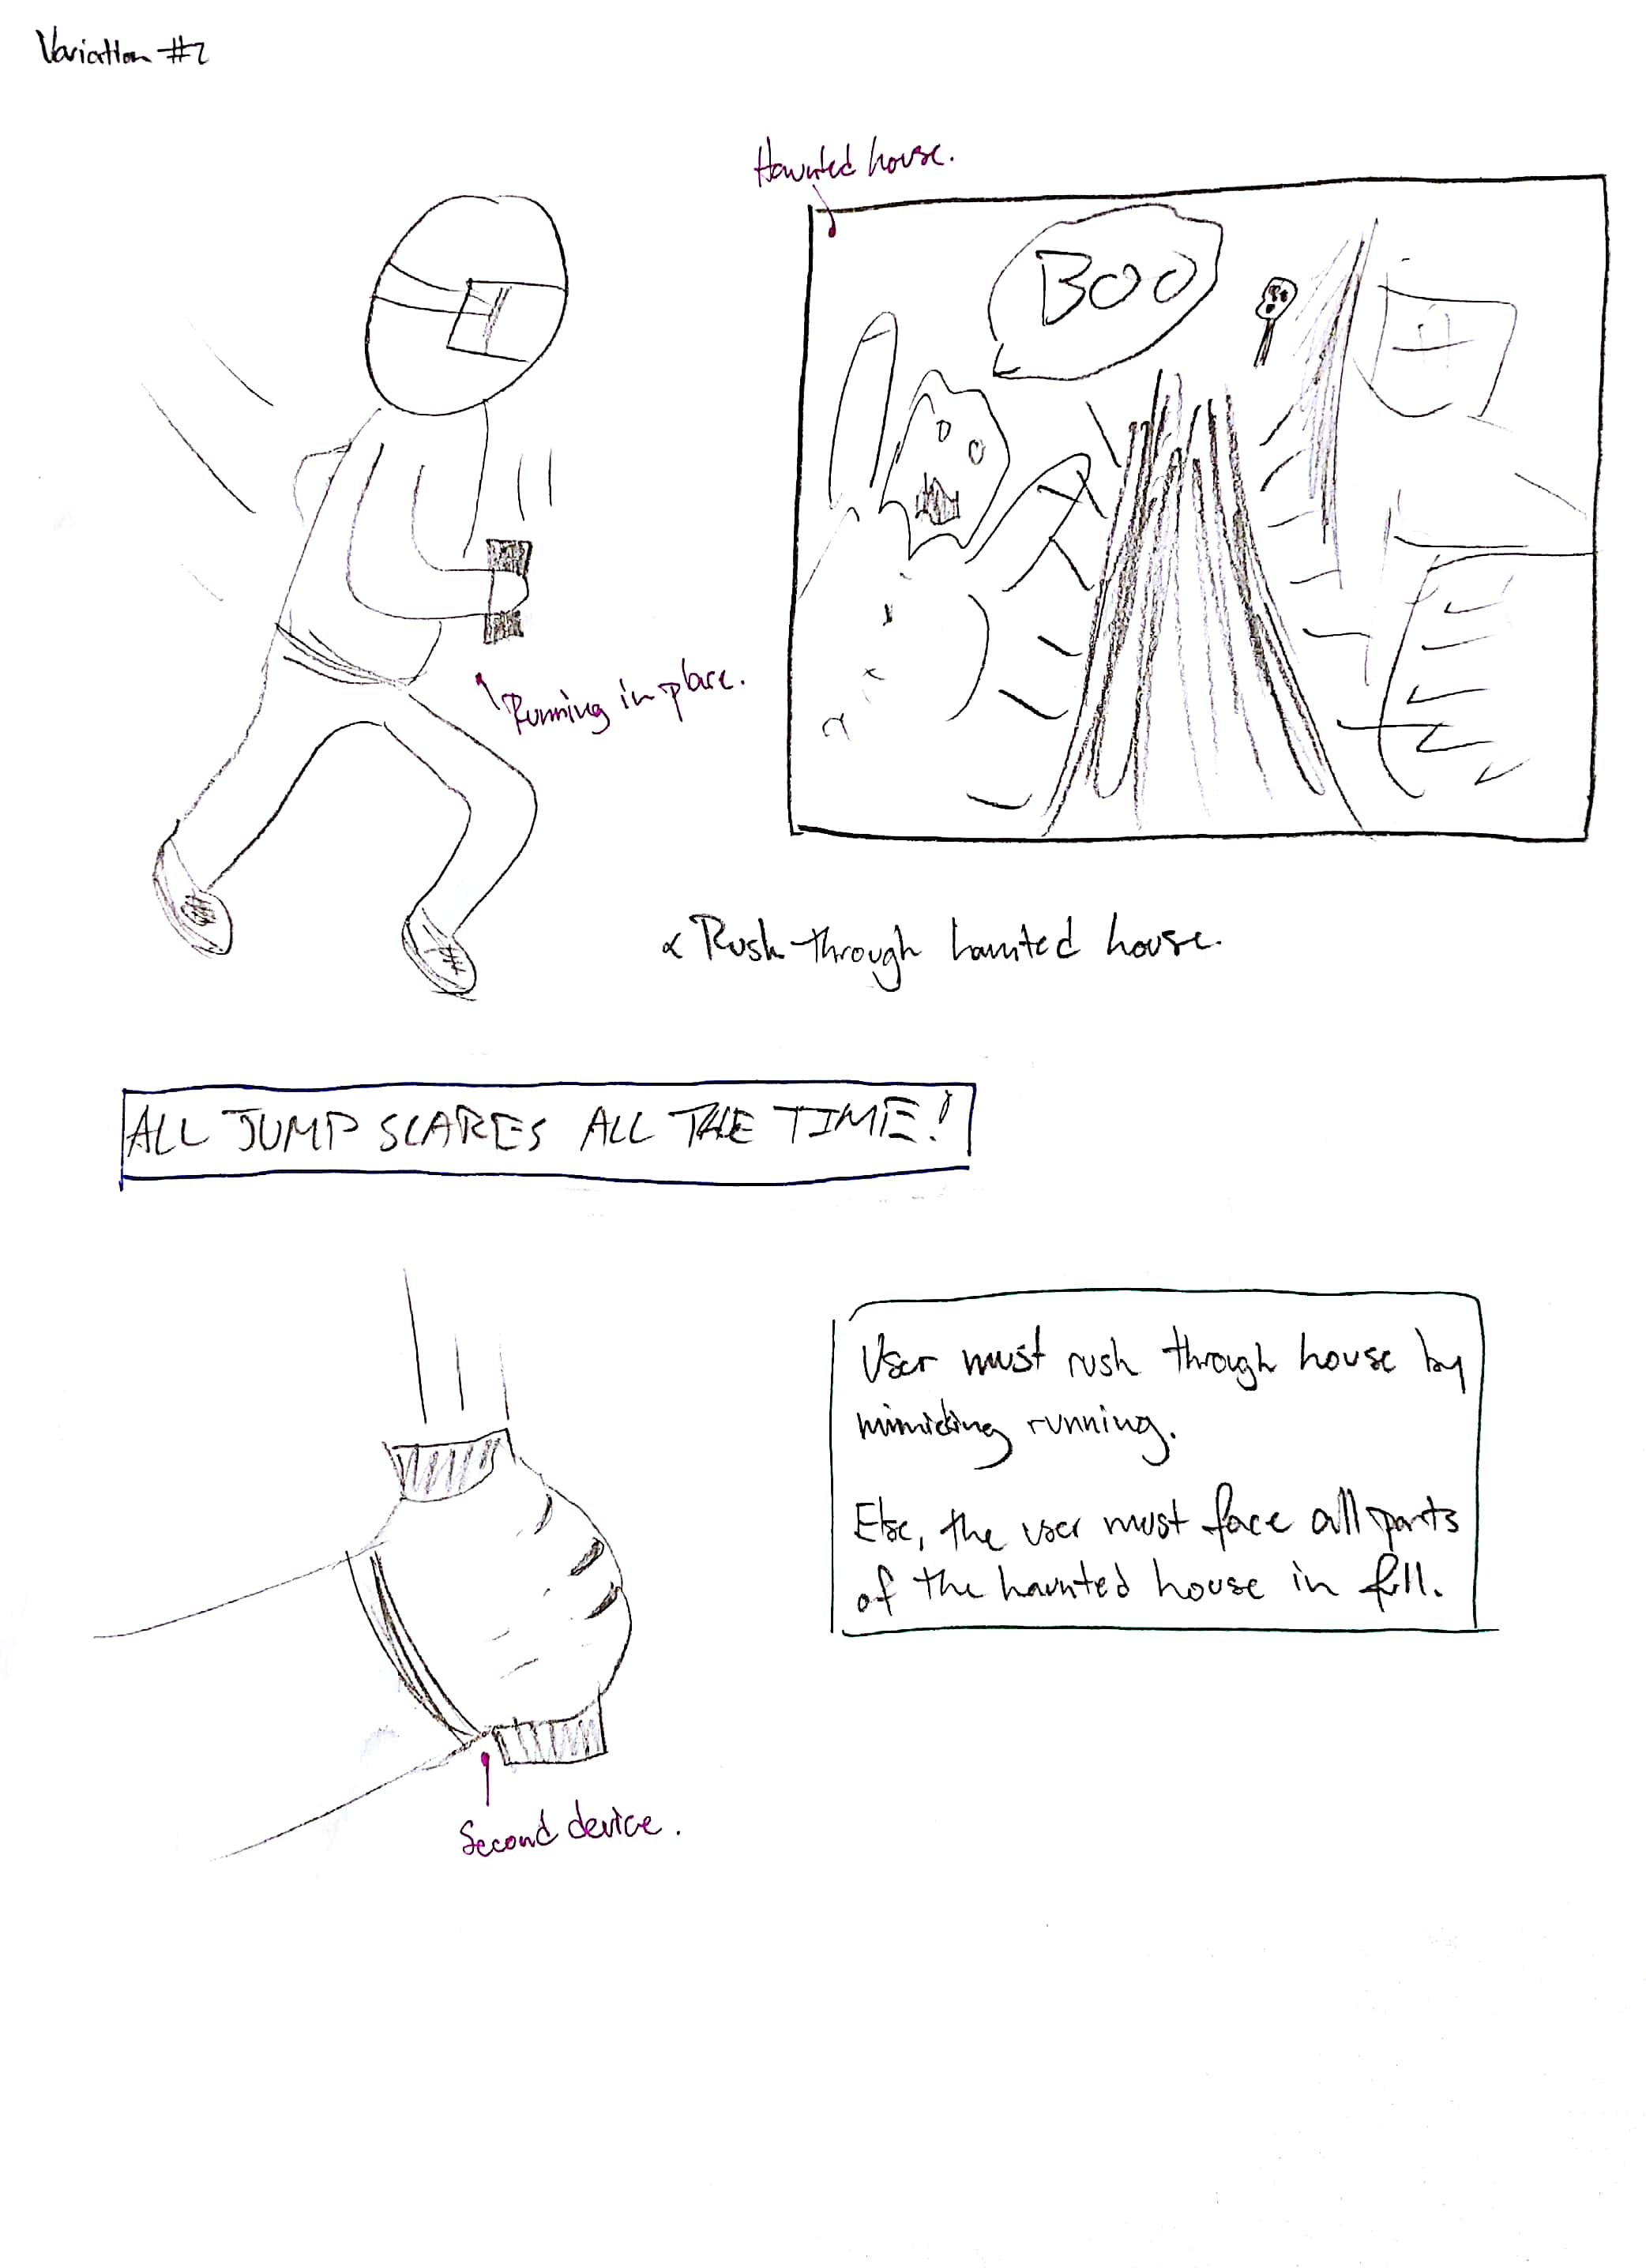 Variation #2
Haunted house.
BOO
Running in place.
Rush through haunted house.
ALL JUMP SCARES ALL THE TIME!
User must rush through house by
mimicking running.
Else, the user must face all parts
of the haunted house in full.
Second device.